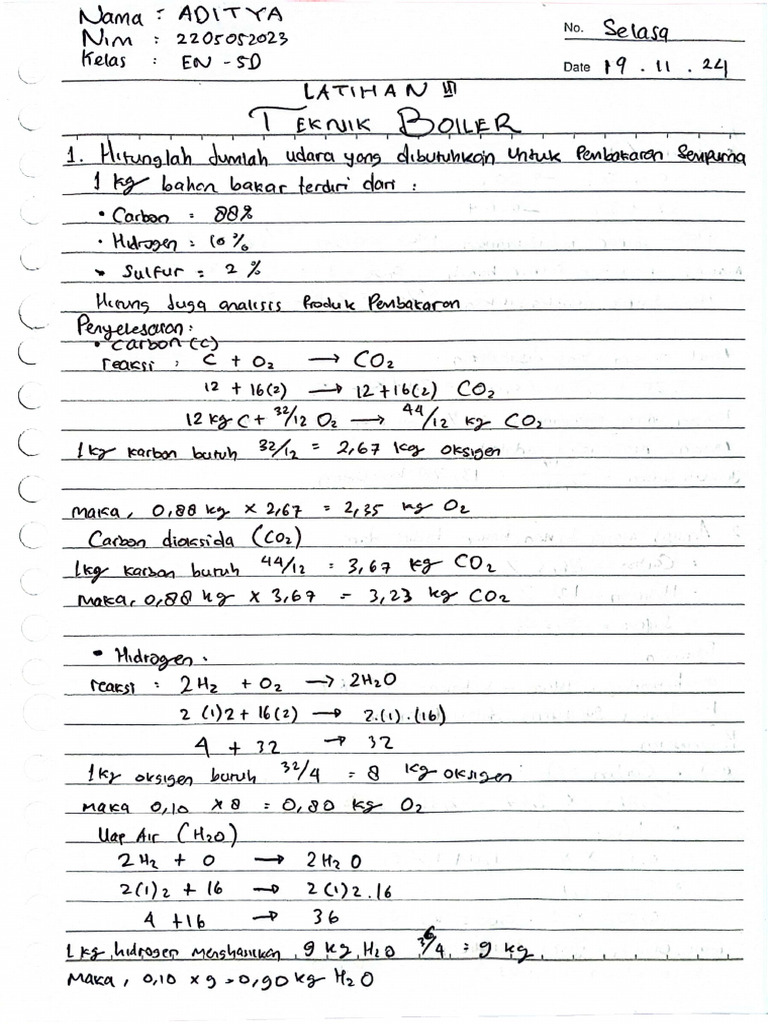 Nama : ADITYA
Nim : 2205052023
Kelas : EN - 5D
No. Selasa
Date 19 . 11 . 24
LATIHAN III
TEKNIK BOILER
1. Hitunglah Jumlah udara yang dibutuhkan Untuk Pembakaran Sempurna
1 kg bahan bakar terdiri dari :
• Carbon = 88%
• Hidrogen = 10%
• Sulfur = 2 %
Hitung Juga analisis Produk Pembakaran
Penyelesaian :
• Carbon (C)
reaksi : C + O2 → CO2
12 + 16(2) → 12 + 16(2) CO2
12 kg C + 32/12 O2 → 44/12 kg CO2
1kg karbon butuh 32/12 = 2,67 kg oksigen
maka, 0,88 kg × 2,67 = 2,35 kg O2
Carbon dioksida (CO2)
1kg karbon butuh 44/12 = 3,67 kg CO2
maka, 0,88 kg × 3,67 = 3,23 kg CO2
• Hidrogen :
reaksi : 2H2 + O2 → 2H2O
2 (1)2 + 16(2) → 2.(1).(16)
4 + 32 → 32
1kg oksigen butuh 32/4 = 8 kg oksigen
maka 0,10 × 8 = 0,80 kg O2
Uap Air (H2O)
2H2 + O → 2H2O
2(1)2 + 16 → 2(1)2.16
4 +16 → 36
1 kg hidrogen menghasilkan 9 kg H2O 36/4 = 9 kg
Maka, 0,10 × 9 = 0,90 kg H2O